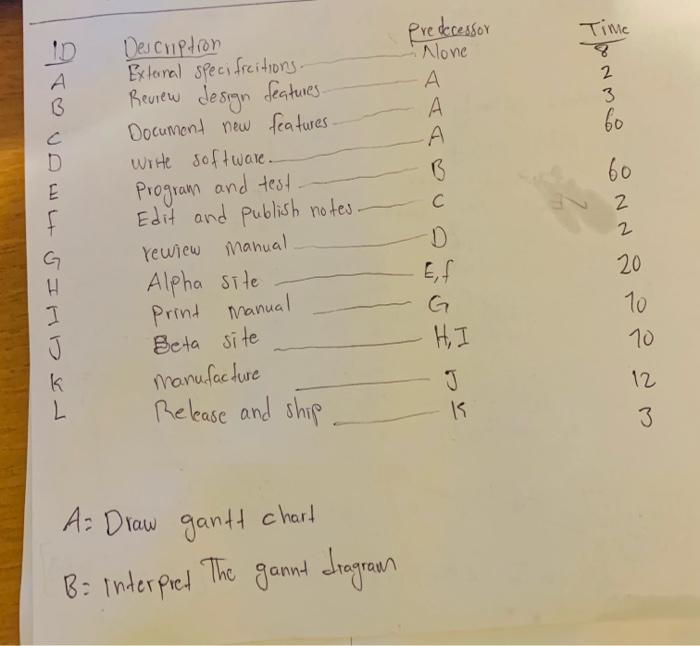 ID Description Predecessor Time
A External specifications None 8
B Review design features A 2
C Document new features A 3
D write software. A 60
E Program and test B 60
F Edit and publish notes C 2
G rewiew manual D 2
H Alpha site E,f 20
I Print manual G 10
J Beta site H,I 10
K manufacture J 12
L Release and ship K 3
A= Draw gantt chart
B= interpret The gannt diagram